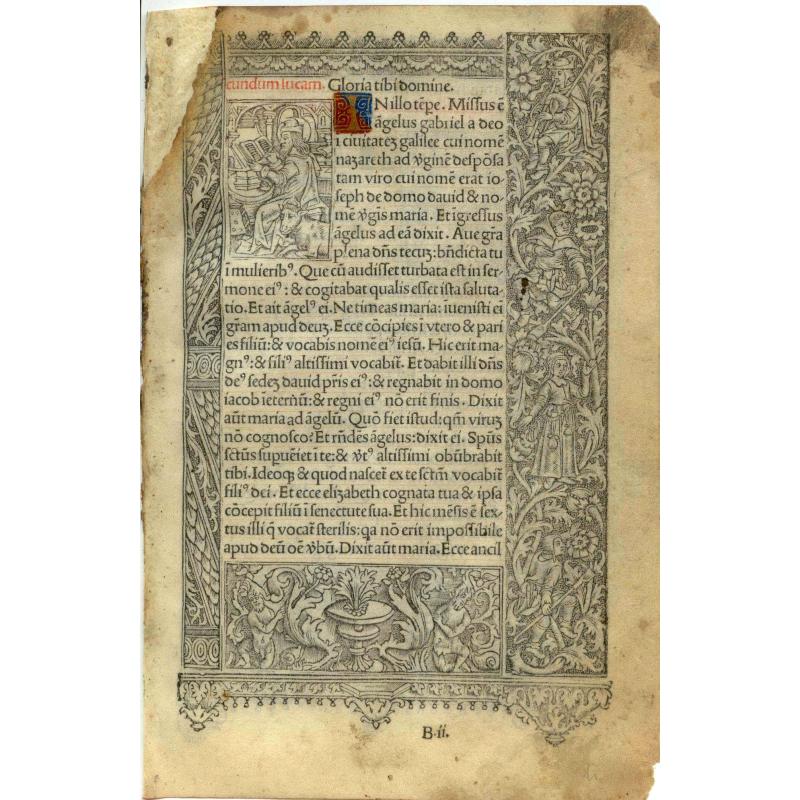 cundum lucam. Gloria tibi domine.
INillo tēpe. Missus ē
āgelus gabriel a deo
ī ciuitateʒ galilee cui nomē
naʒareth ad v̄ginē despōsa
tam viro cui nomē erat io-
seph de domo dauid & no-
mē v̄gīs maria. Et īgressus
āgelus ad eā dixit. Aue grā
plena dn̄s tecuʒ: bn̄dicta tu
ī mulierib⁹. Que cū audisset turbata est in ser-
mone ei⁹: & cogitabat qualis esset ista saluta-
tio. Et ait āgel⁹ ei. Ne timeas maria: īuenisti ei
grām apud deuʒ. Ecce cōcipies ī vtero & pari
es filiū: & vocabis nomē ei⁹ iesū. Hic erit ma-
gn⁹: & fili⁹ altissimi vocabit̄. Et dabit illi dn̄s
de⁹ sedeʒ dauid pr̄is ei⁹: & regnabit in domo
iacob īeternū: & regni ei⁹ nō erit finis. Dixit
aūt maria ad āgelū. Quō fiet istud: qm̄ viruʒ
nō cognosco? Et rn̄des āgelus: dixit ei. Spūs
sctūs supuēiet ī te: & v̄t⁹ altissimi obūbrabit
tibi. Ideoqʒ & quod nascet̄ ex te sctm̄ vocabit̄
fili⁹ dei. Et ecce eliʒabeth cognata tua & ipsa
cōcepit filiū ī senectute sua. Et hic mēsis ē sex-
tus illi q̄ vocat̄ sterilis: qa nō erit impossibile
apud deū oē v̄bū. Dixit aūt maria. Ecce ancil
B.ii.